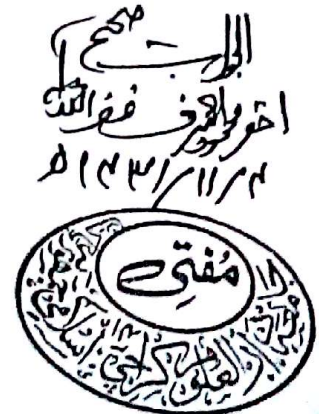 الجواب صحیح
احقر محمود اشرف غفر اللہ لہ
۴/۱۱/۱۴۳۱ھ
مُفتی
دارالعلوم کراچی